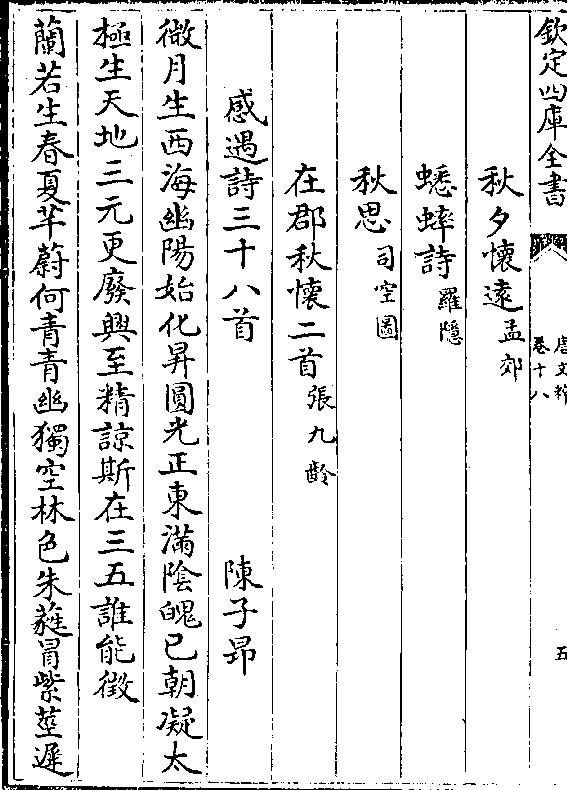 欽定四庫全書
唐文粹
卷十八
五
秋夕懷遠孟郊
蟋蟀詩羅隱
秋思司空圖
在郡秋懷二首張九齡
感遇詩三十八首 陳子昂
微月生西海幽陽始化昇圓光正東滿陰魄已朝凝太
極生天地三元更廢興至精諒斯在三五誰能徵
蘭若生春夏芊蔚何青青幽獨空林色朱蕤冒紫莖遲